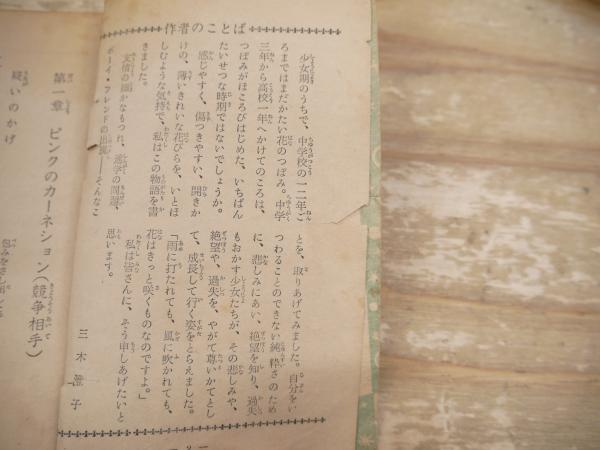 作者のことば
少女期のうちで、中学校の一二年ご
ろまではまだかたい花のつぼみ。中学
三年から高校一年へかけてのころは、
つぼみがほころびはじめた、いちばん
たいせつな時期ではないでしょうか。
感じやすく、傷つきやすい、開きか
けの、薄いきれいな花びらを、いとほ
しむような気持で、私はこの物語を書
きました。
友情の細かなもつれ、進学の問題、
ボーイ・フレンドの出現――そんなこ
とを、取りあげてみました。自分をい
つわることのできない純粋さのため
に、悲しみにあい、絶望を知り、過失
もおかす少女たちが、その悲しみや、
絶望や、過失を、やがて尊いかてとし
て、成長して行く姿をとらえました。
「雨に打たれても、風に吹かれても、
花はきっと咲くものなのですよ。」
私は皆さんに、そう申しあげたいと
思います。
三木澄子
第一章 ピンクのカーネーション(競争相手)
疑いのかげ